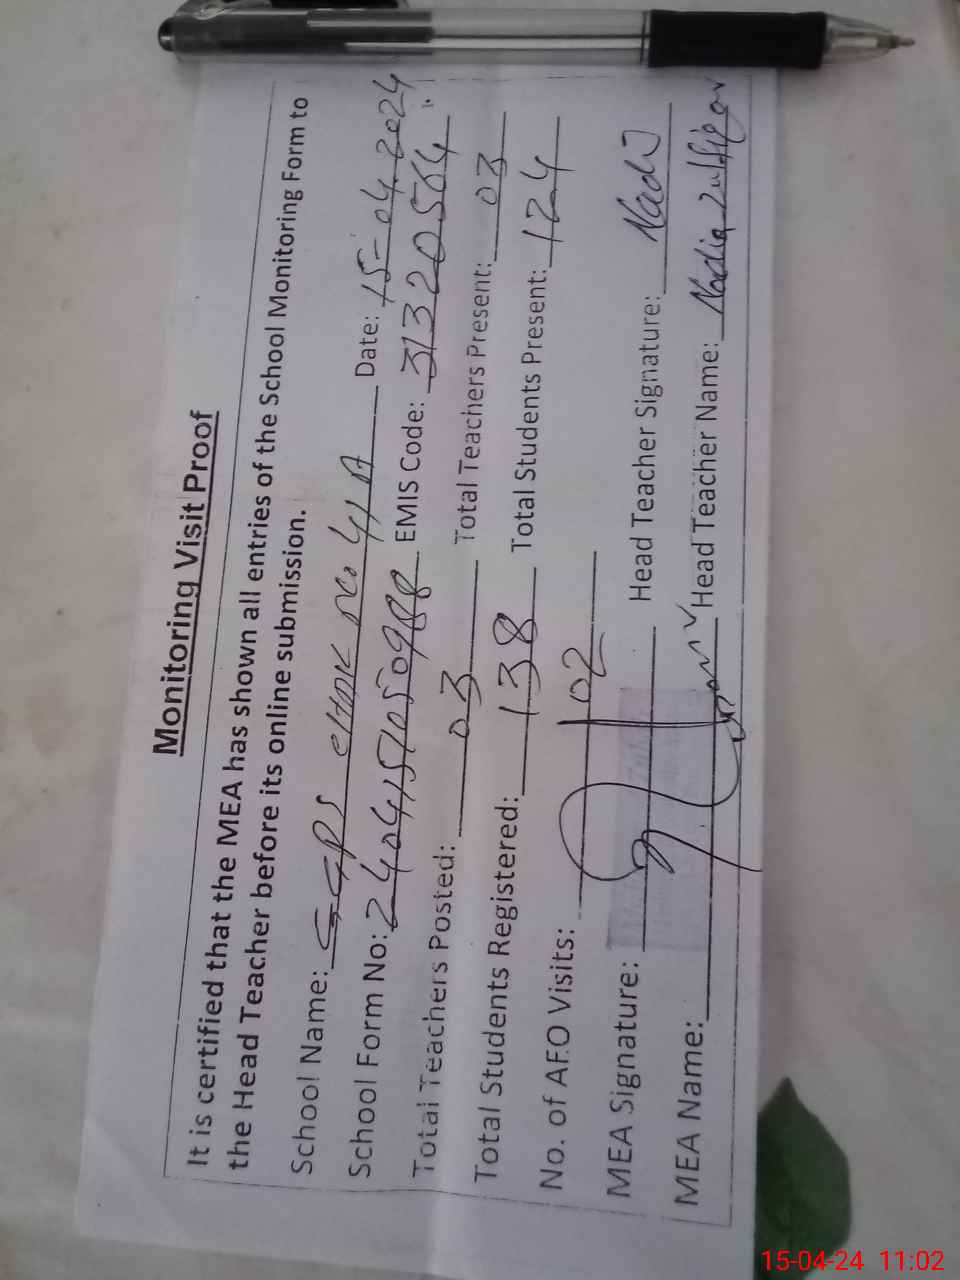 Monitoring Visit Proof
It is certified that the MEA has shown all entries of the School Monitoring Form to
the Head Teacher before its online submission.
School Name: GGPS CHAK NO 41 A Date: 15-04.2024
School Form No: 2404151050988 EMIS Code: 31320564
Total Teachers Posted: 03 Total Teachers Present: 03
Total Students Registered: 138 Total Students Present: 124
No. of AEO Visits: 02
MEA Signature: Head Teacher Signature: Nadi
MEA Name: Head Teacher Name: Nadia Zulfiqar
15-04-24 11:02